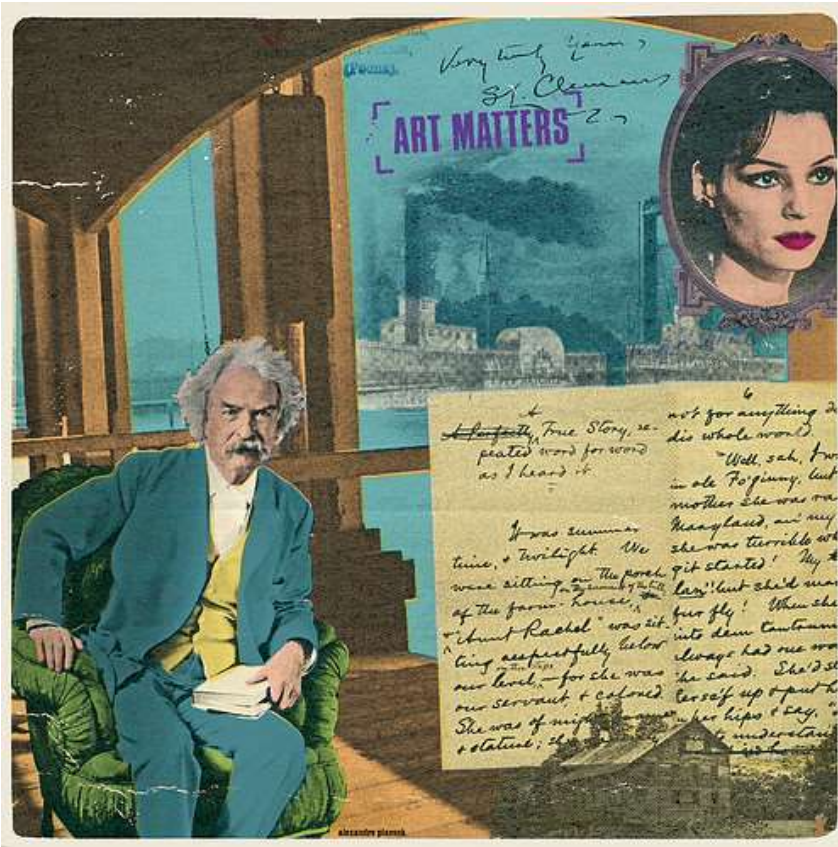 (Poona).
Very truly Yours,
S. L. Clemens
ART MATTERS
A
A Perfectly True Story, re-
peated word for word
as I heard it.
It was summer
time, & twilight. We
were sitting on the porch
of the farm-house,
"Aunt Rachel" was sit-
ting respectfully below
our level, — for she was
our servant & colored
She was of
& stature;
6
not for anything
dis whole world.
"Well, sah, I
in ole Fo'ginny, but
mother she was
Maaryland, an' my
she was terrible
git started! My
lan'! but she'd
fur fly! When she
into dem tantrums
always had one
he said. She'd
herse'f up & put
her hips & say,
to understan'
alexandre piovani